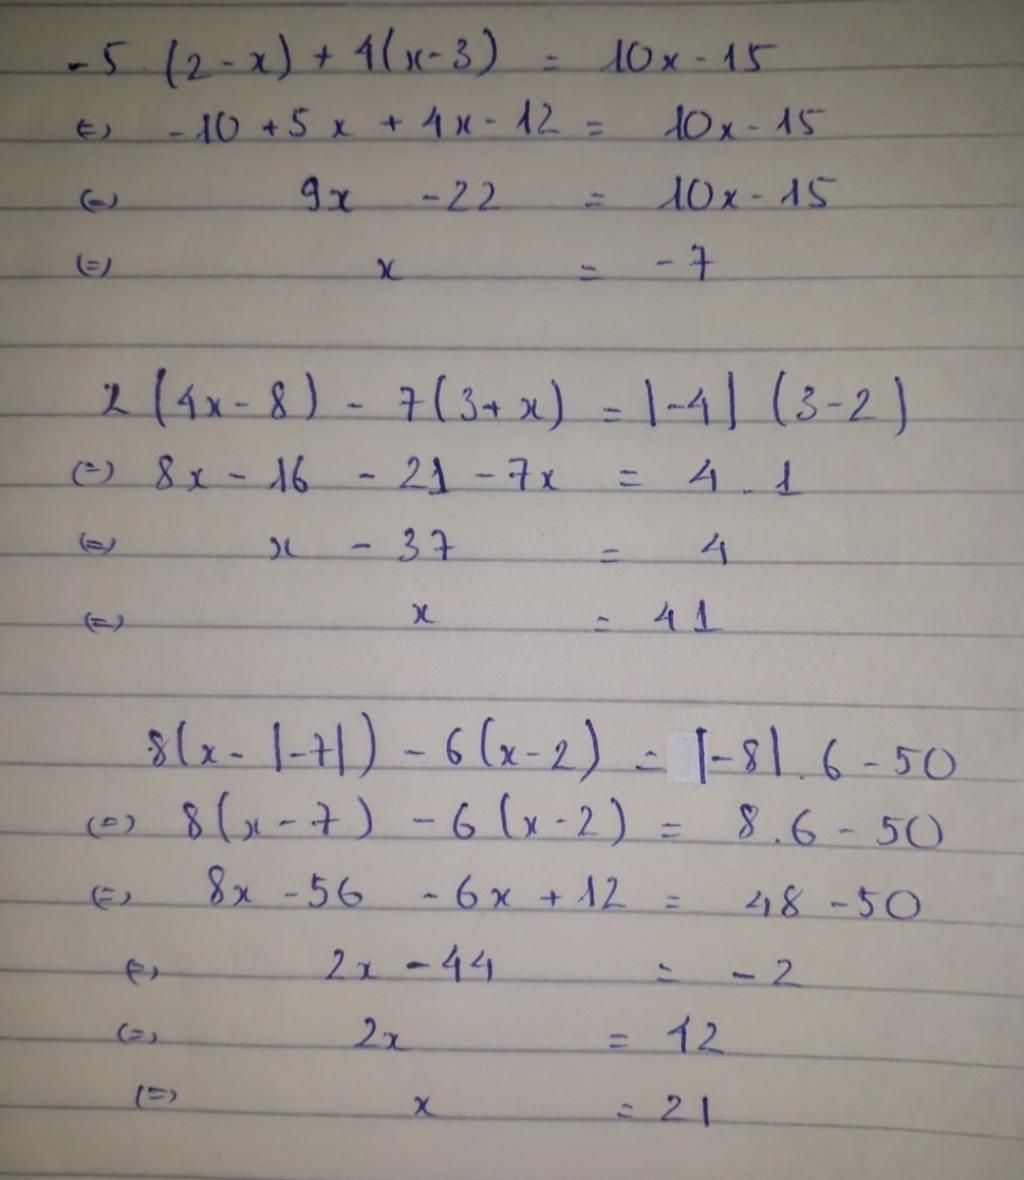 -5.(2-x) + 4(x-3) = 10x-15
(=) -10 +5x + 4x - 12 = 10x-15
(=) 9x -22 = 10x-15
(=) x = -7
2(4x-8) - 7(3+x) = |-4| (3-2)
(=) 8x - 16 - 21 - 7x = 4.1
(=) x - 37 = 4
(=) x = 41
8(x-|-7|) - 6(x-2) = |-8|.6-50
(=) 8(x-7) - 6(x-2) = 8.6-50
(=) 8x -56 -6x + 12 = 48-50
(=) 2x - 44 = -2
(=) 2x = 42
(=) x = 21